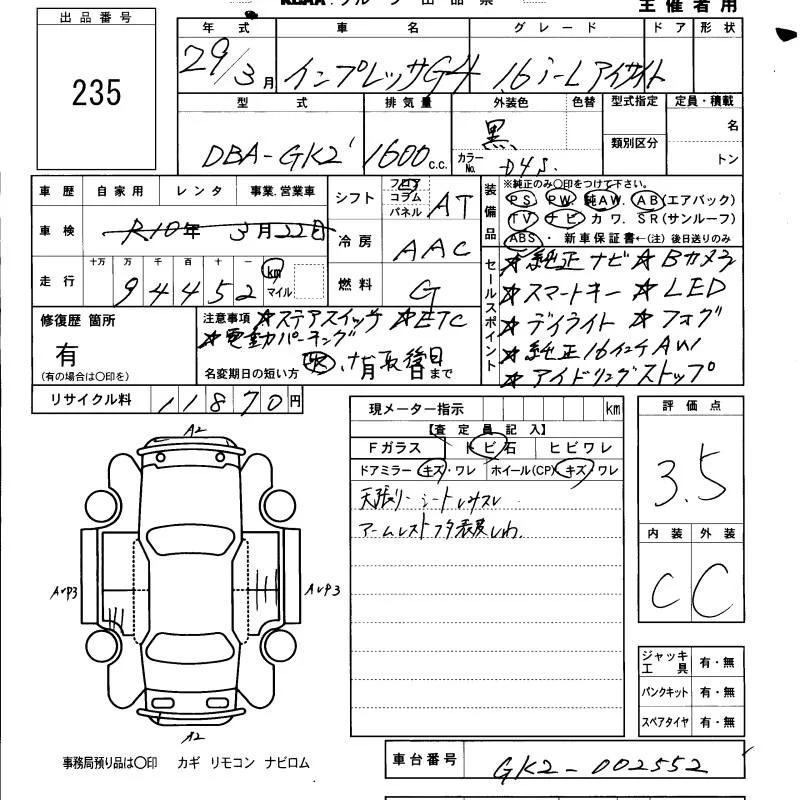 主催者用
出品番号
235
年式 車名 グレード ドア 形状
29/3月 インプレッサG4 1.6i-Lアイサイト
型式 排気量 外装色 色替 型式指定 定員・積載
DBA-GK2 1600c.c. 黒 カラーNo. D4S. 類別区分 名 トン
車歴 自家用 レンタ 事業.営業車
車検 R.10年 3月22日
走行 十万 万 千 百 十 一
94452 km マイル
シフト フロア コラム パネル AT
冷房 AAC
燃料 G
装備品 ※純正のみ○印をつけて下さい。
PS PW 純AW. AB(エアバック)
TV ナビ カワ. SR(サンルーフ)
ABS・ 新車保証書←(注) 後日送りのみ
セールスポイント
☆純正ナビ☆Bカメラ
☆スマートキー ☆LED
☆デイライト ☆フォグ
☆純正16インチAW
☆アイドリングストップ
修復歴 箇所
有
(有の場合は○印を)
注意事項 ☆ステアスイッチ ☆ETC
☆電動パーキング
名変期日の短い方 まで
リサイクル料 11870円
現メーター指示 km
【査定員記入】
Fガラス トビ石 ヒビワレ
ドアミラー キズ・ワレ ホイール(CP) キズ・ワレ
天張り シート
アームレスト
評価点
3.5
内装 外装
C C
A2
AUP3 AUP3
A2
ジャッキ工具 有・無
パンクキット 有・無
スペアタイヤ 有・無
事務局預り品は○印 カギ リモコン ナビロム
車台番号 GK2-002552